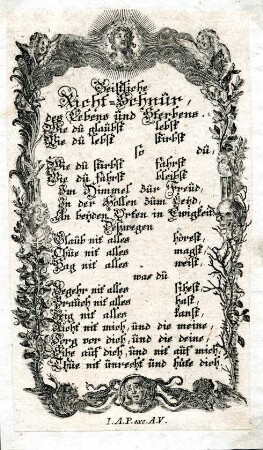 Geistliche
Richt=Schnur,
des Lebens und Sterbens.
Wie du glaubst lebst
Wie du lebst stirbst
so du,
Wie du stirbst fahrst
Wie du fahrst bleibst
Im Himmel zur Freud,
In der Höllen zum Leyd,
An beyden Orten in Ewigkeit
Deswegen
Glaub nit alles hörest,
Thue nit alles magst,
Sag nit alles weist,
was du
Begehr nit alles sihest,
Brauch nit alles hast,
Zeig nit alles kanst,
Richt nit mich, und die meine,
Sorg vor dich, und die deine,
Gibe auf dich, und nit auf mich,
Thüe nit unrecht und hüte dich.
I.A.P. exc. A.V.